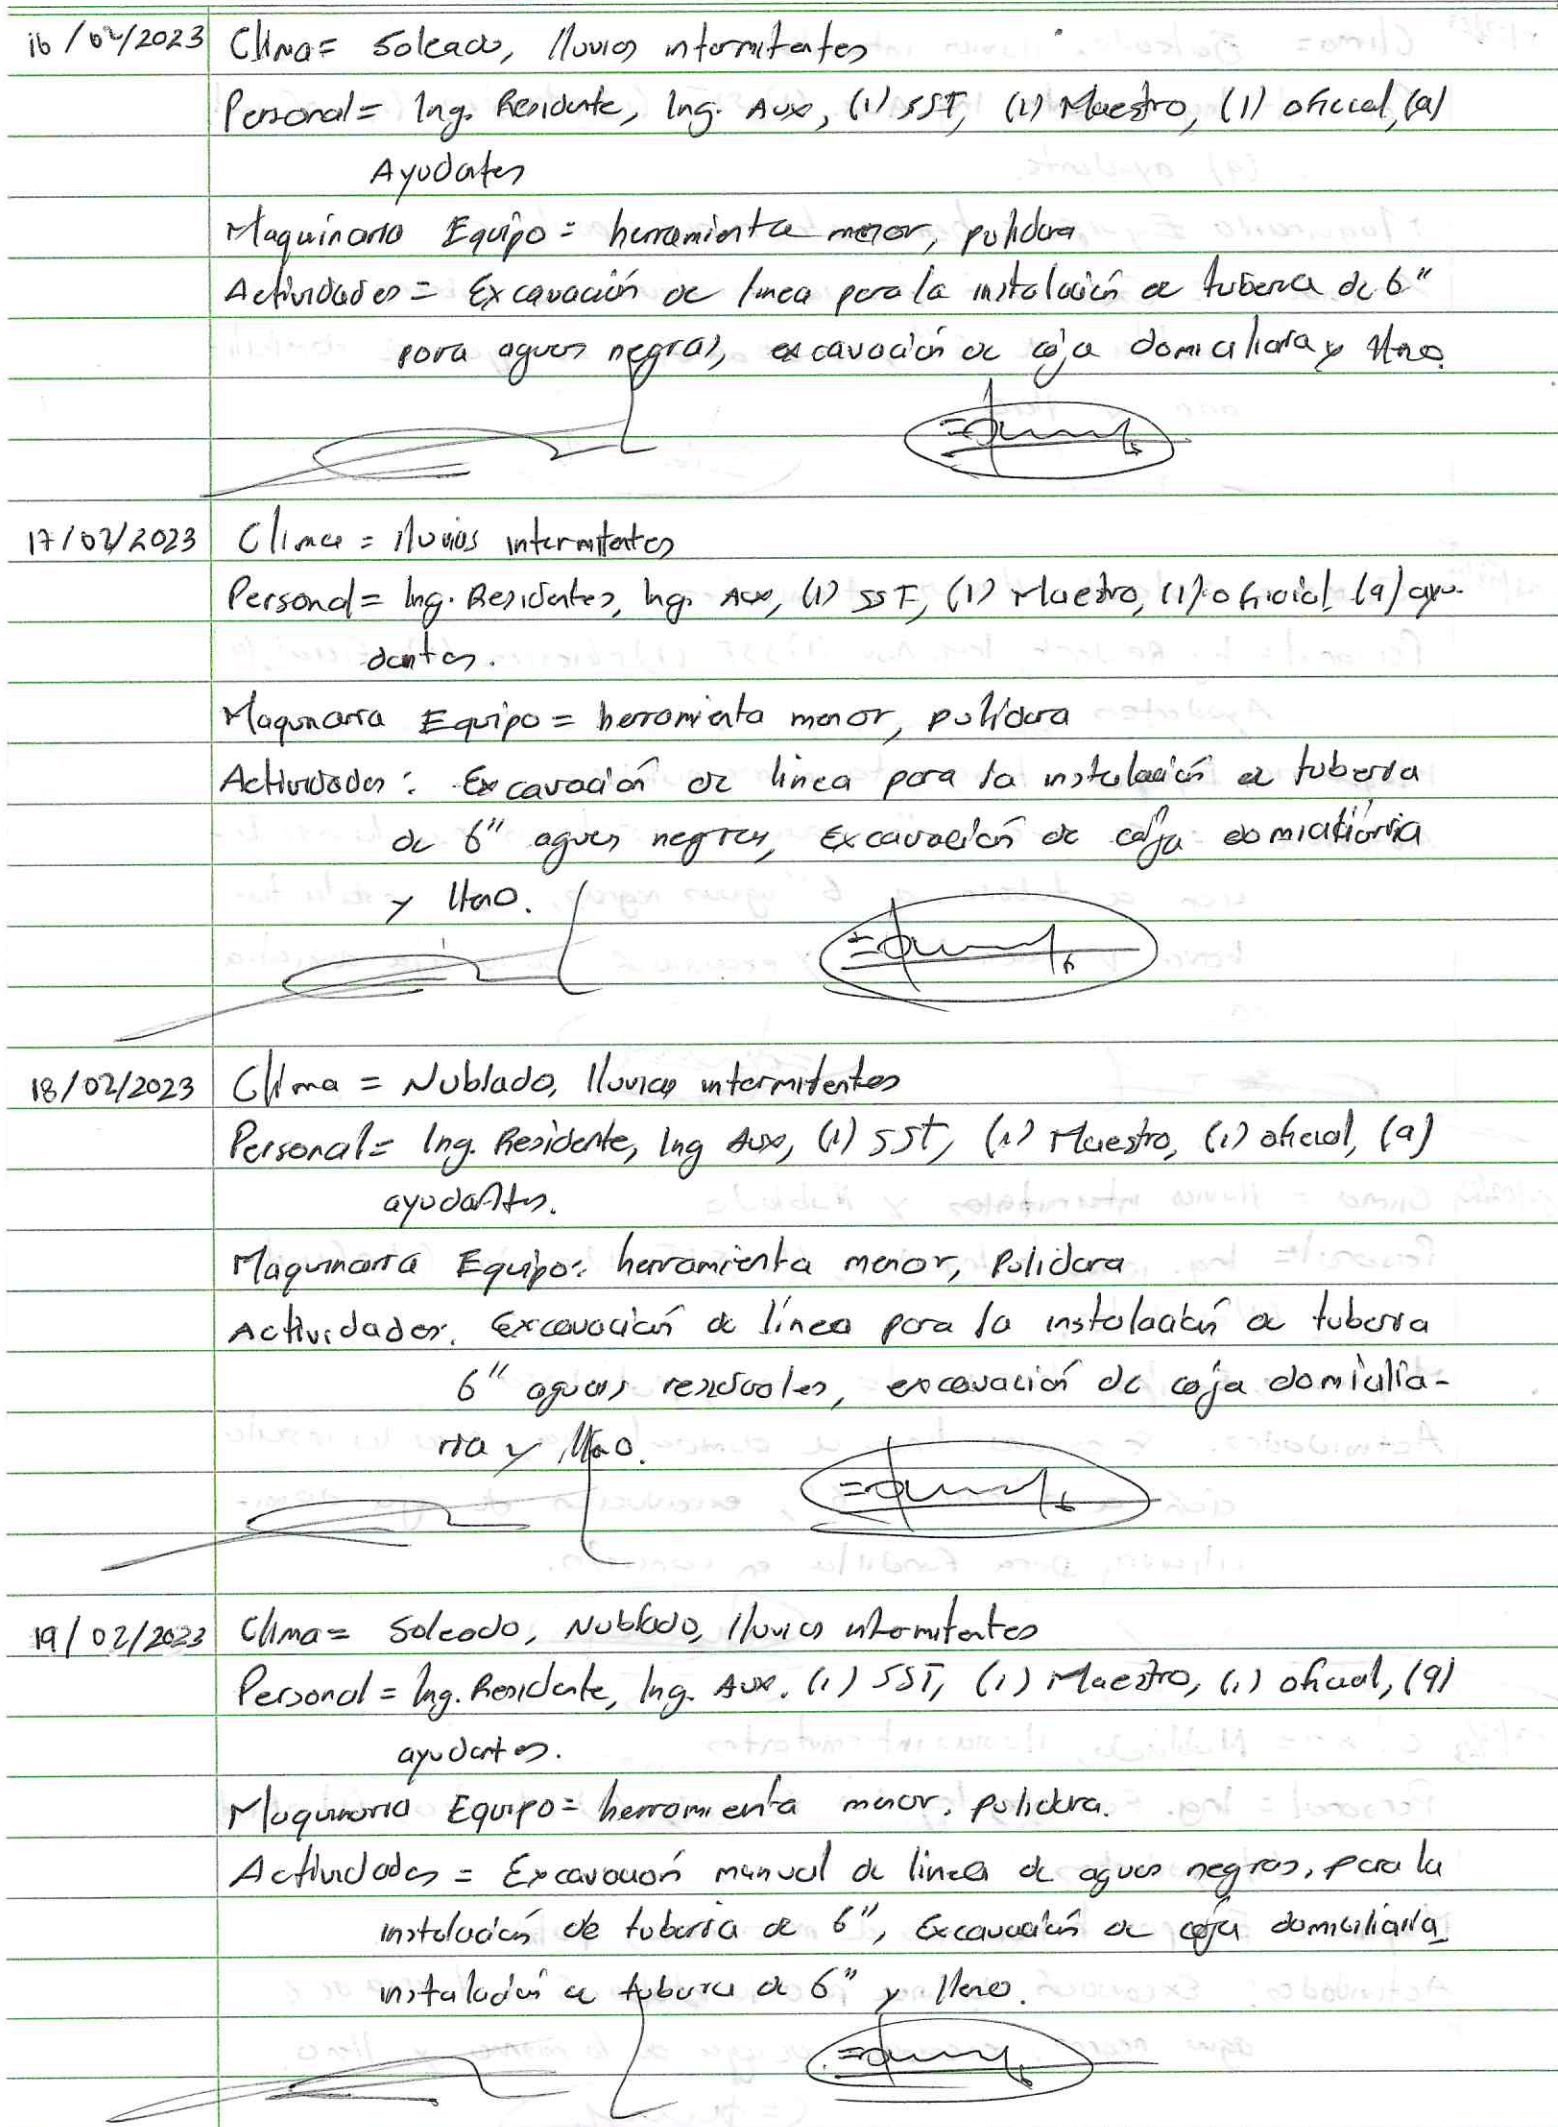 16/02/2023 Clima= Soleado, lluvias intermitentes
Personal= Ing. Residente, Ing. Aux, (1) SST, (1) Maestro, (1) oficial, (9)
Ayudantes
Maquinaria Equipo= herramienta menor, pulidora
Actividades= Excavación de línea para la instalación de tubería de 6"
para aguas negras, excavación de caja domiciliaria y lleno.
17/02/2023 Clima = lluvias intermitentes
Personal= Ing. Residentes, Ing. Aux, (1) SST, (1) Maestro, (1) oficial, (9) ayu-
dantes.
Maquinaria Equipo= herramienta menor, pulidora
Actividades: Excavación de línea para la instalación de tubería
de 6" aguas negras, Excavación de caja domiciliaria
y lleno.
18/02/2023 Clima = Nublado, lluvias intermitentes
Personal= Ing. Residente, Ing Aux, (1) SST, (1) Maestro, (1) oficial, (9)
ayudantes.
Maquinaria Equipo: herramienta menor, Pulidora
Actividades. Excavación de línea para la instalación de tubería
6" aguas residuales, excavación de caja domicilia-
ria y lleno.
19/02/2023 Clima= Soleado, Nublado, lluvias intermitentes
Personal= Ing. Residente, Ing. Aux. (1) SST, (1) Maestro, (1) oficial, (9)
ayudantes.
Maquinaria Equipo= herramienta menor, pulidora.
Actividades = Excavación manual de línea de aguas negras, para la
instalación de tubería de 6", Excavación de caja domiciliaria
instalación de tubería de 6" y lleno.